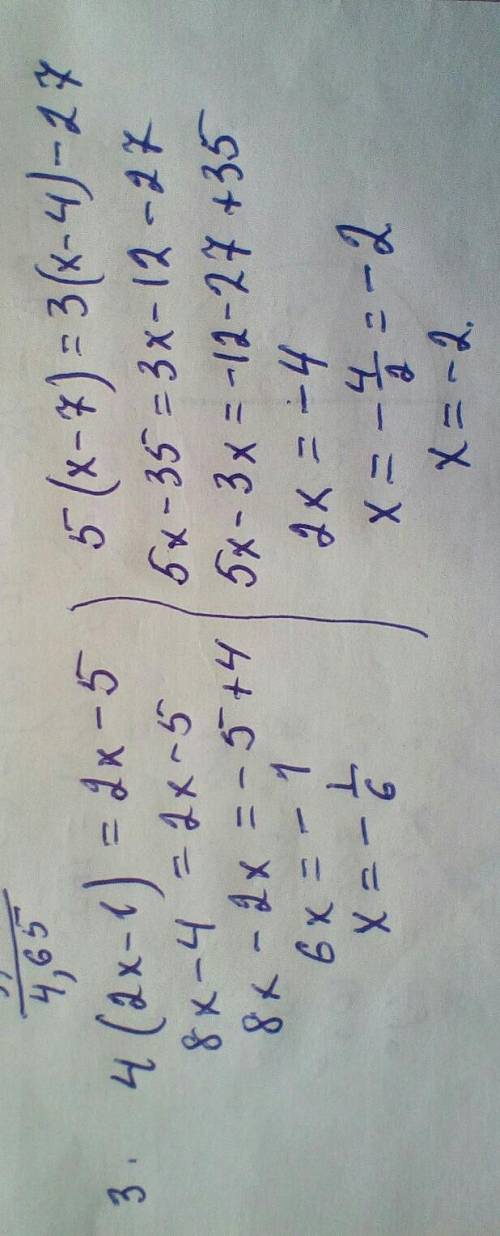 4,65
3. 4(2x-1) = 2x-5
8x-4 = 2x-5
8x-2x = -5+4
6x = -1
x = -1/6
5(x-7) = 3(x-4)-27
5x-35 = 3x-12-27
5x-3x = -12-27+35
2x = -4
x = -4/2 = -2
x = -2.